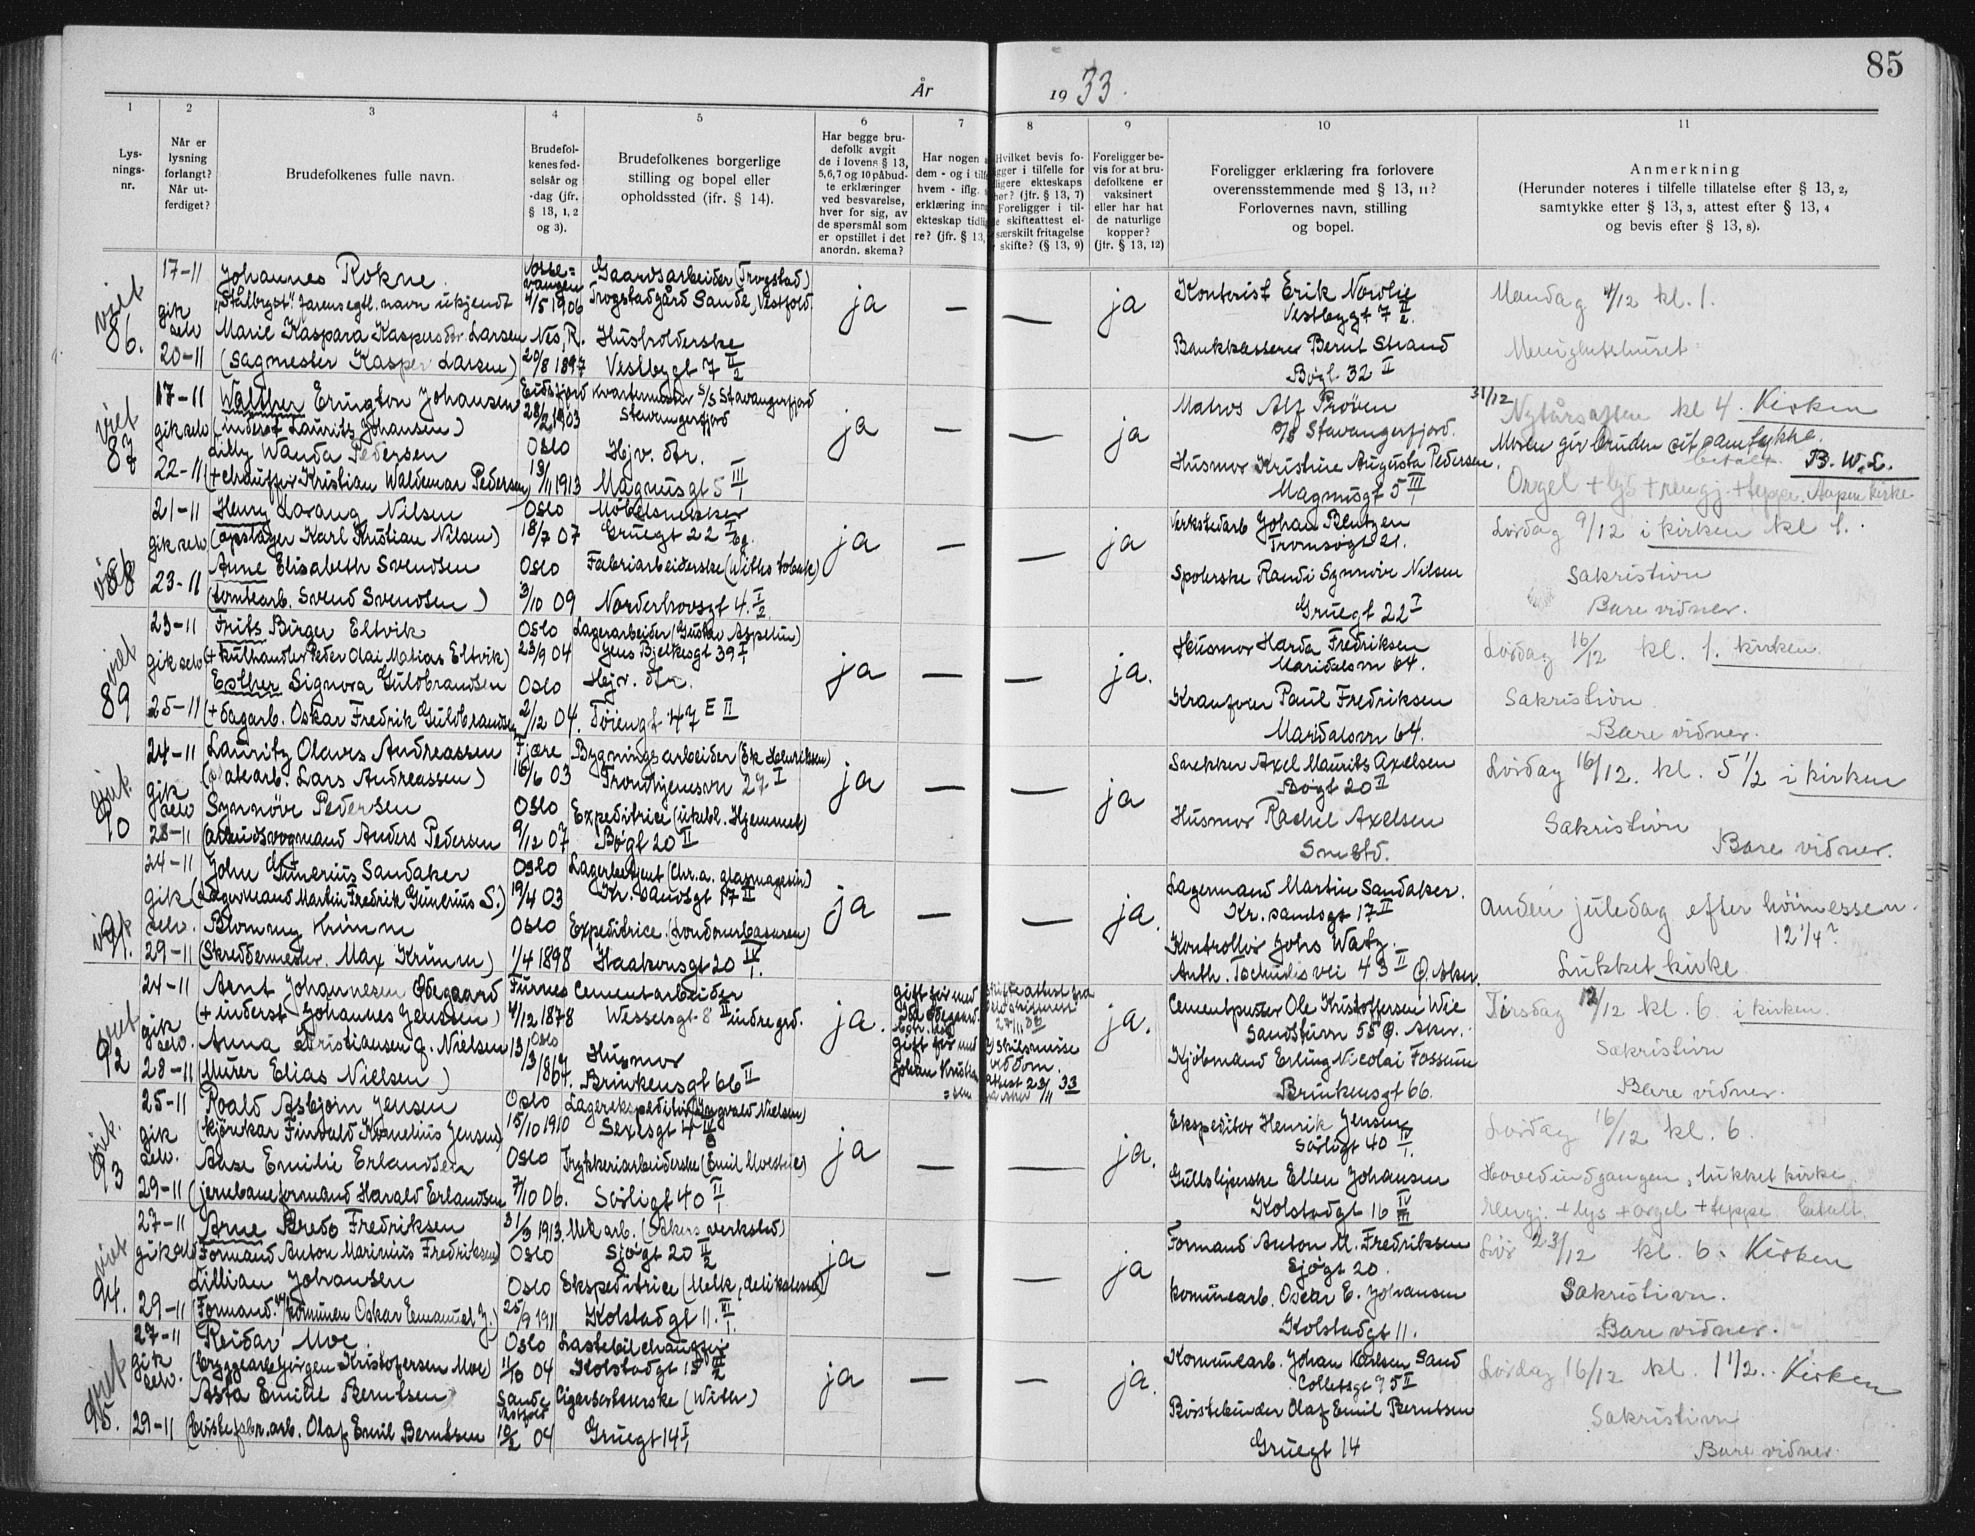 85
År 1933.
1
2
3
4
5
6
7
8
9
10
11
Lys-
nings-
nr.
Når er
lysning
forlangt?
Når ut-
ferdiget?
Brudefolkenes fulle navn.
Brudefol-
kenes fød-
selsår og
-dag (jfr.
§ 13, 1, 2
og 3).
Brudefolkenes borgerlige
stilling og bopel eller
opholdssted (ifr. § 14).
Har begge bru-
defolk avgit
de i lovens § 13,
5,6,7 og 10 påbud-
te erklæringer
ved besvarelse,
hver for sig, av
de spørsmål som
er opstillet i det
anordn. skema?
Har nogen
dem - og i tilf
hvem - iflg.
erklæring inn
ekteskap tidlig
re? (jfr. § 13,
Hvilket bevis fo-
igger i tilfelle for
ligere ekteskaps
hør? (jfr. § 13, 7)
Foreligger i til-
le skifteattest el-
særskilt fritagelse
skifte? (§ 13, 9)
Foreligger be-
vis for at bru-
defolkene er
vaksinert
eller har hat
de naturlige
kopper?
(jfr. § 13, 12)
Foreligger erklæring fra forlovere
overensstemmende med § 13, 11?
Forlovernes navn, stilling
og bopel.
Anmerkning
(Herunder noteres i tilfelle tillatelse efter § 13, 2,
samtykke efter § 13, 3, attest efter § 13, 4
og bevis efter § 13, 8).
viet
86.
17-11
gik
selv
20-11
Johannes Rokne
"Stålbygt" farens egtl. navn ukjendt
Marie Kaspara Kaspersdtr Larsen
(Sagmester Kasper Larsen)
Vosse=
vangen
4/5 1906
Nes, R.
20/8 1897
Gaardsarbeider (Trogstad)
Trogstadgård Sande, Vestfold
Husholderske
Vestbygt 7 II/2
ja
—
—
ja
Kontorist Erik Nordlie
Vestbygt 7 II/2.
Bankkasserer Bernt Strand
Bøgt. 32 II
Mandag 4/12 kl. 1.
Menighetshuset
viet
87
17-11
gik selv
22-11
Walther Erington Johansen
(inderst Lauritz Johansen)
Wanda Pedersen
(+ chauffør Kristian Waldemar Pedersen)
Eidsfjord
28/2 1903
Oslo
13/11 1913
Kvartermester S/S Stavangerfjord
Stavangerfjord
Hjv. dtr.
Magnusgt 5 III/1
ja
—
—
ja
Matros Alf Prøven
S/S Stavangerfjord.
Husmor Kristine Augusta Pedersen.
Magnusgt 5 III
31/12
Nytårsaften kl 4. Kirken
Moren gir bruden sit samtykke.
betalt. B. W. L.
Orgel + lys + rengj. + teppe. Aapen kirke
viet
88
21-11
gik selv
23-11
Henry Lorang Nilsen
(opslager Karl Kristian Nilsen)
Anne Elisabeth Svendsen
(tomtearb. Svend Svendsen)
Oslo
18/7 07
Oslo
3/10 09
Møbelsnekker
Gruegt 22 I
Fabrikarbeiderske (Withs tobak)
Norderhovsgt 4. I/2
ja
—
—
ja
Verkstedarb Johan Bentzen
Tromsøgt 21.
Spolerske Randi Synnøve Nilsen
Gruegt 22 I
Lørdag 9/12 i kirken kl 1.
Sakristiet
Bare vidner.
viet
89
23-11
gik selv
25-11
Frits Birger Eltvik
(+ kulhandler Peder Olai Matias Eltvik)
Esther Signora Guldbrandsen
(+ dagarb. Oskar Fredrik Guldbrandsen
Oslo
23/9 04
Oslo
2/12 04.
Lagerarbeider (Gustav Aspelin)
Jens Bjelkesgt 39 I/1
Hejv. dtr.
Tøiengt 47 E II
ja
—
—
ja.
Husmor Harda Fredriksen
Maridalsvn 64.
Kranfører Paul Fredriksen
Maridalsvn 64.
Lørdag 16/12 kl. 1. kirken.
Sakristien
Bare vidner.
90
24-11
gik
selv
28-11
Lauritz Olaves Andreassen
Lars Andreassen)
Synnøve Pedersen
(arbeidsvognmand Anders Pedersen
Fjære
16/6 03
Oslo
9/12 07
Bygningsarbeider (Ek Henriksen)
Trondhjemsvn 27 I
Expeditrice (ukebl. Hjemmet)
Bøgt 20 II
ja
—
—
ja
Snekker Axel Maurits Axelsen
Bøgt 20 II
Husmor Rachel Axelsen
Smstd.
Lørdag 16/12. kl. 5 1/2 i kirken
Sakristien
Bare vidner.
91.
24-11
gik
selv.
29-11
John Gunerius Sandaker
(Lagermand Martin Fredrik Gunerius S.)
Blommy Krimm
(Skreddermester. Max Krimm)
Oslo
19/4 03
Oslo
1/4 1898
Lagerbetjent (Chr.a. glasmagasin)
Kr. sandsgt 17 II
Expeditrice (Londonerbasaren)
Haakonsgt 20 IV/1.
ja
—
—
ja.
Lagermand Martin Sandaker.
Kr. sandsgt 17 II
Kontrollør Johs Watz.
Anth. Tschudis vei 43 II Ø. Aker
Anden juledag efter høimessen.
12 1/4?
Lukket kirke
viet
92
24-11
gik
selv.
28-11
Arnt Johannesen Ødegaard
(+ inderst Johannes Jenssen)
Anna Kristiansen f. Nielsen
(Murer Elias Nielsen)
Furnes
4/12 1878
Oslo
13/3 1867.
Cementarbeider
Wesselsgt 8 II indre grd.
Husmor
Brinkensgt 66 II
ja.
gift før med
Ida Ødegaard
gift før med
Johan Kristian
=sen
skifteattest fra
Oslo skifterett
27/11 33
Skilsmisse
ved dom.
attest 23/11 33
ja.
Cementpusser Ole Kristoffersen Wie
Sandstuvn 55 Ø. Aker.
Kjøbmand Erling Nicolai Fossum
Brinkensgt 66.
Tirsdag 12/12 kl. 6. i kirken.
Sakristien
Bare vidner.
93
25-11
gik
selv.
29-11
Roald Asbjørn Jensen
(kjørekar Finvald Kornelius Jensen)
Aase Emilie Erlandsen
(jernbaneformand Harald Erlandsen
Oslo
15/10 1910
Oslo
7/10 06.
Lagerekspeditør (Ingvald Nielsen)
Sexesgt 4 IV
Trykkeriarbeiderske (Emil Moestue)
Sørligt 40 II/1
ja
—
—
ja.
Ekspeditør Henrik Jensen
Sørligt 40 IV/1.
Gullsliperske Ellen Johansen
Kolstadgt 16 IV/III
Lørdag 16/12 kl. 6.
Hovedindgangen, lukket kirke
Rengj. + lys + orgel + teppe betalt.
viet
94.
27-11
gik selv
29-11
Arne Bredo Fredriksen
(Formand Anton Marinius Fredriksen)
Lillian Johansen
(Formand v/ kommunen Oskar Emanuel J.)
31/3 1913.
Oslo
Oslo
25/9 1911
Mek arb. (Akers verksted)
Sjøgt 20 II/2
Ekspeditrice (Melk, delikatesse)
Kolstadgt 11. III/1.
ja
—
—
ja
Formand Anton M. Fredriksen
Sjøgt 20.
Komunearb. Oscar E. Johansen
Kolstadgt 11.
Lør 23/12 kl. 6. Kirken
Sakristien.
Bare vidner.
viet
95.
27-11
gik
selv.
29-11
Reidar Moe.
(bryggearb Jørgen Kristofersen Moe)
Asta Emilie Berntsen
(børstefabr. arb. Olaf Emil Berntsen
Oslo
11/10 04
Sande
Vestfold
10/2 04
Lastebilchauffør
Kolstadgt 15 III/2
Cigarsorterske (With)
Gruegt 14 I/1
ja
—
—
ja.
Komunearb. Johan Karlsen Sand
Colletsgt 95 I
Børstebinder Olaf Emil Berntsen
Gruegt 14
Lørdag 16/12 kl. 1 1/2. Kirken
Sakristien
Bare vidner.